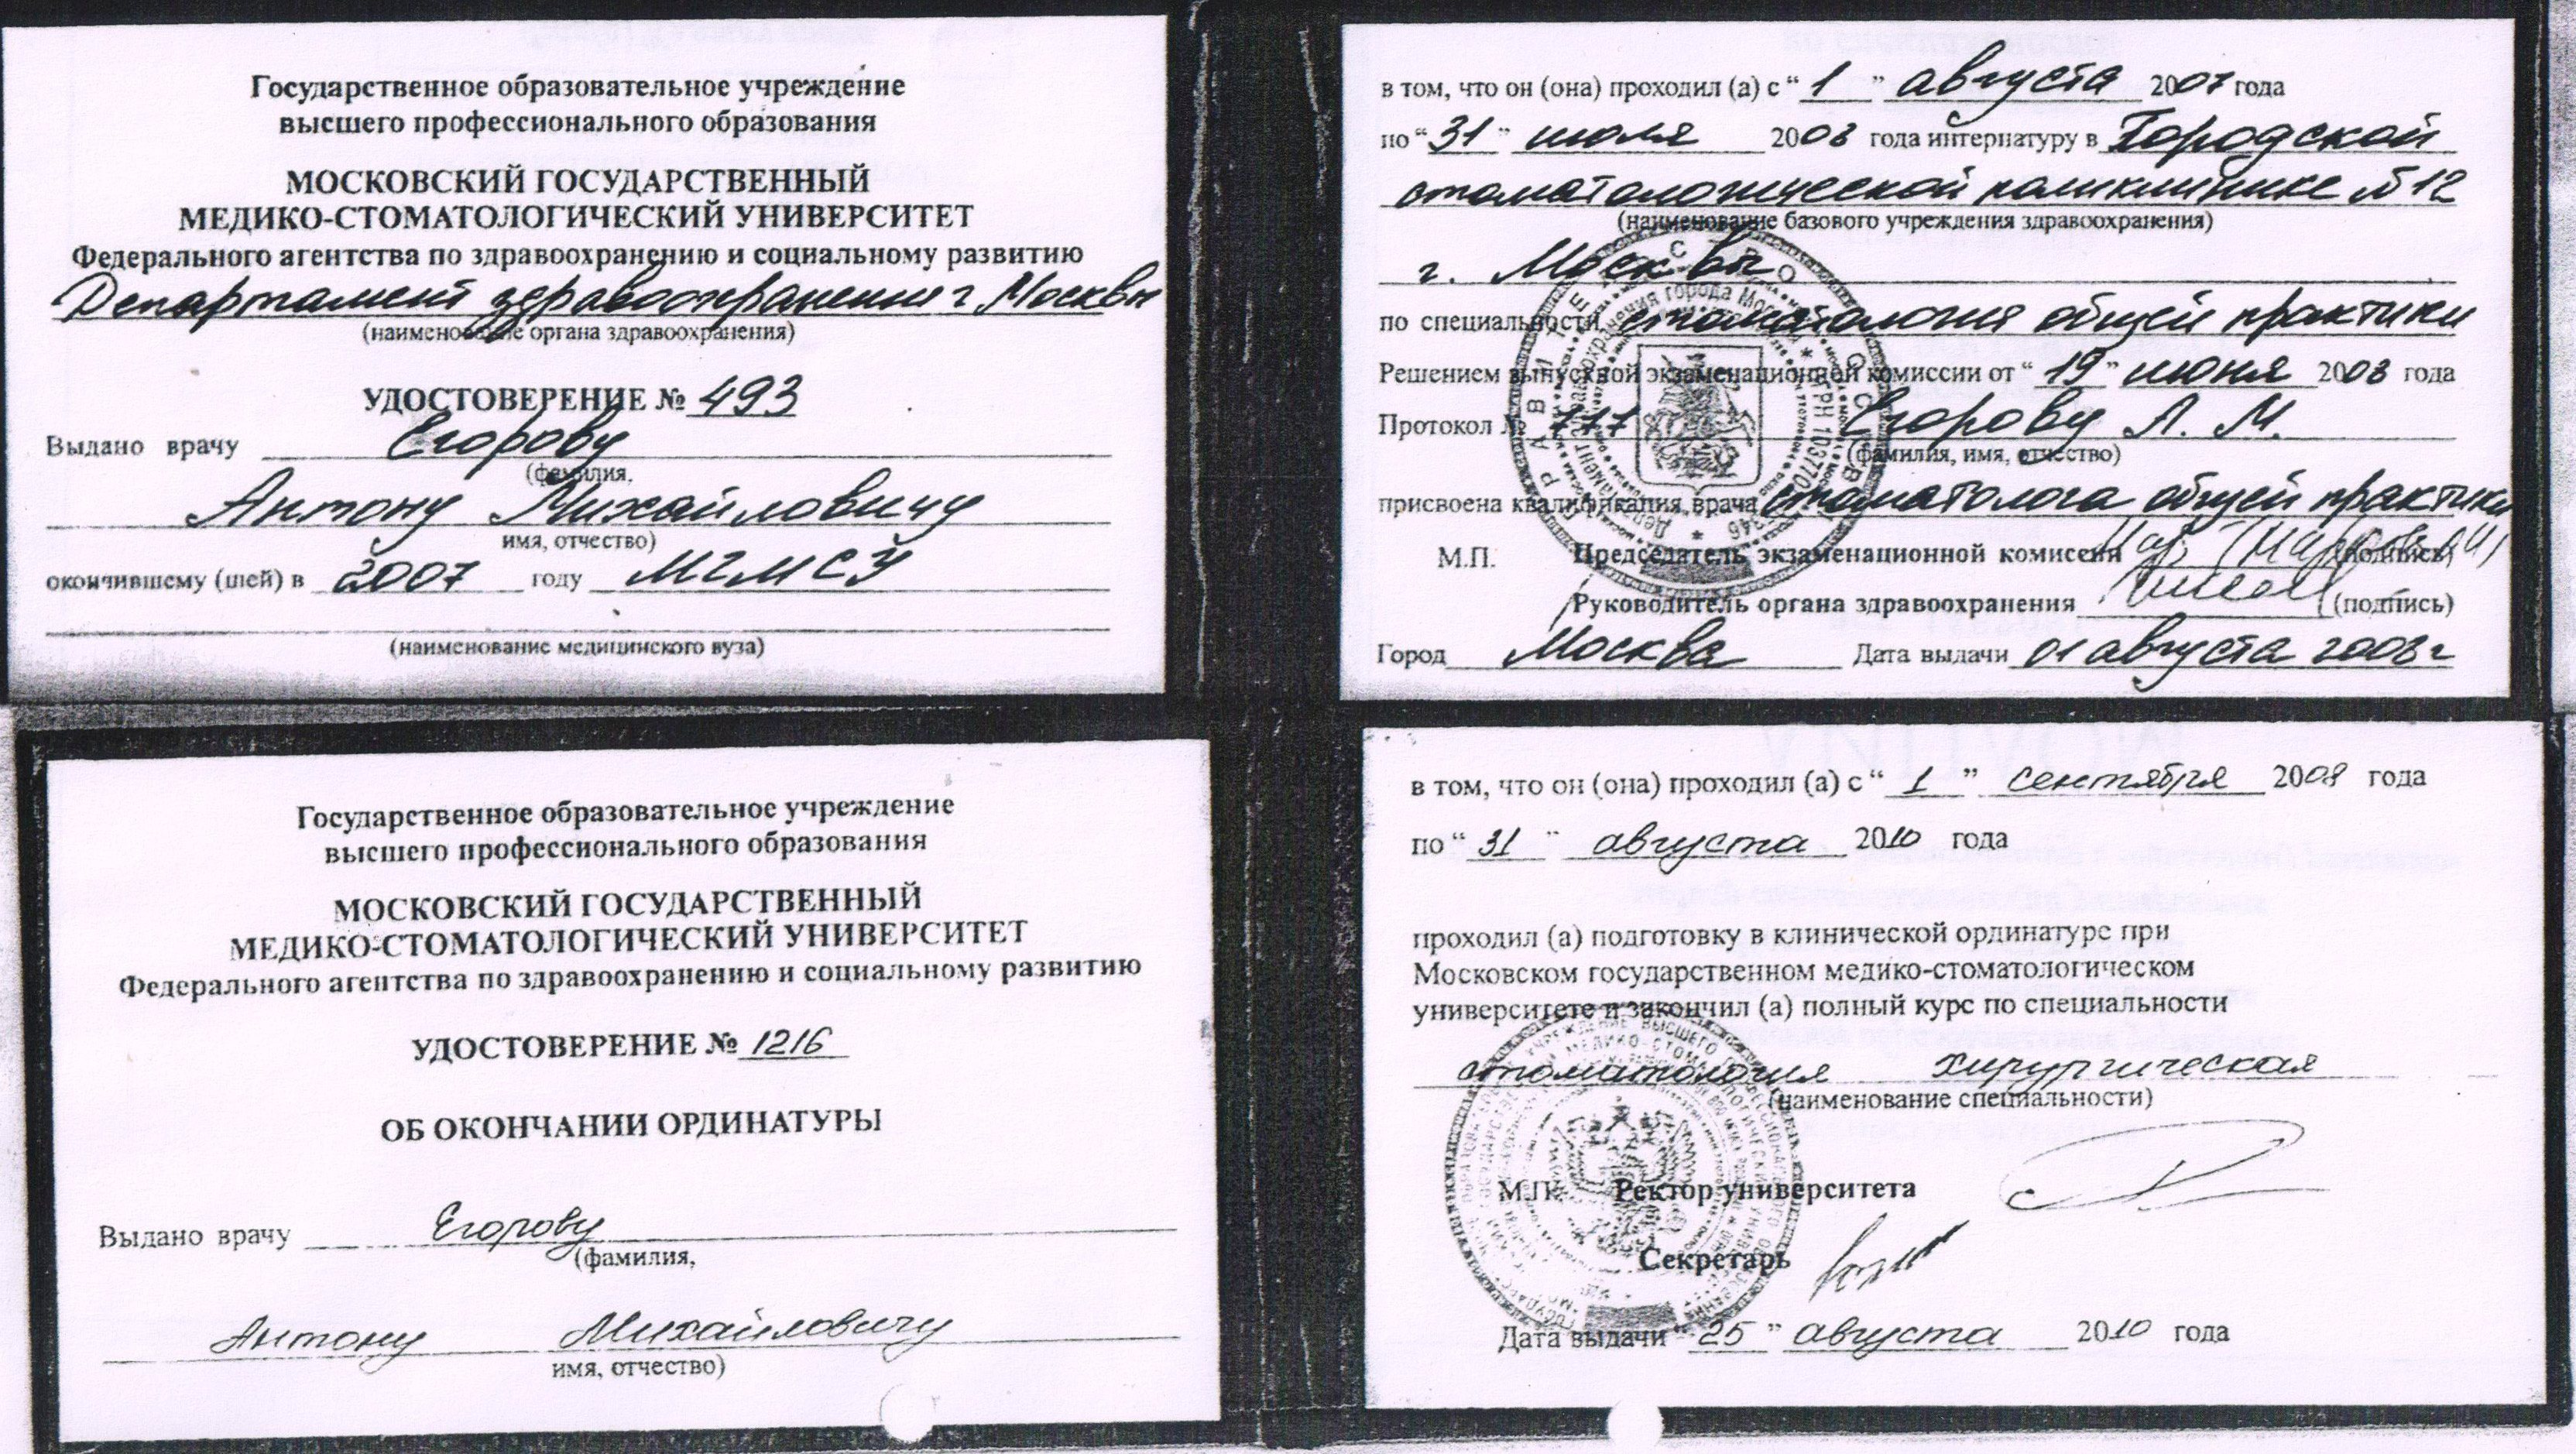 Государственное образовательное учреждение
высшего профессионального образования
МОСКОВСКИЙ ГОСУДАРСТВЕННЫЙ
МЕДИКО-СТОМАТОЛОГИЧЕСКИЙ УНИВЕРСИТЕТ
Федерального агентства по здравоохранению и социальному развитию
Департамент здравоохранения г. Москвы
(наименование органа здравоохранения)
УДОСТОВЕРЕНИЕ № 493
Выдано врачу Егорову
(фамилия,
Антону Михайловичу
имя, отчество)
окончившему (шей) в 2007 году МГМСУ
(наименование медицинского вуза)
в том, что он (она) проходил (а) с “ 1 ” августа 2007 года
по “ 31 ” июля 2008 года интернатуру в Городской
стоматологической поликлинике № 12
(наименование базового учреждения здравоохранения)
г. Москвы
по специальности стоматология общей практики
Решением выпускной экзаменационной комиссии от “ 19 ” июня 2008 года
Протокол № 777 Егорову А. М.
(фамилия, имя, отчество)
присвоена квалификация врача стоматолога общей практики
М.П. Председатель экзаменационной комиссии (подпись)
Руководитель органа здравоохранения (подпись)
Город Москва Дата выдачи 01 августа 2008 г
Государственное образовательное учреждение
высшего профессионального образования
МОСКОВСКИЙ ГОСУДАРСТВЕННЫЙ
МЕДИКО-СТОМАТОЛОГИЧЕСКИЙ УНИВЕРСИТЕТ
Федерального агентства по здравоохранению и социальному развитию
УДОСТОВЕРЕНИЕ № 1216
ОБ ОКОНЧАНИИ ОРДИНАТУРЫ
Выдано врачу Егорову
(фамилия,
Антону Михайловичу
имя, отчество)
в том, что он (она) проходил (а) с “ 1 ” сентября 2008 года
по “ 31 ” августа 2010 года
проходил (а) подготовку в клинической ординатуре при
Московском государственном медико-стоматологическом
университете и закончил (а) полный курс по специальности
стоматология хирургическая
(наименование специальности)
М.П. Ректор университета
Секретарь
Дата выдачи “ 25 ” августа 2010 года